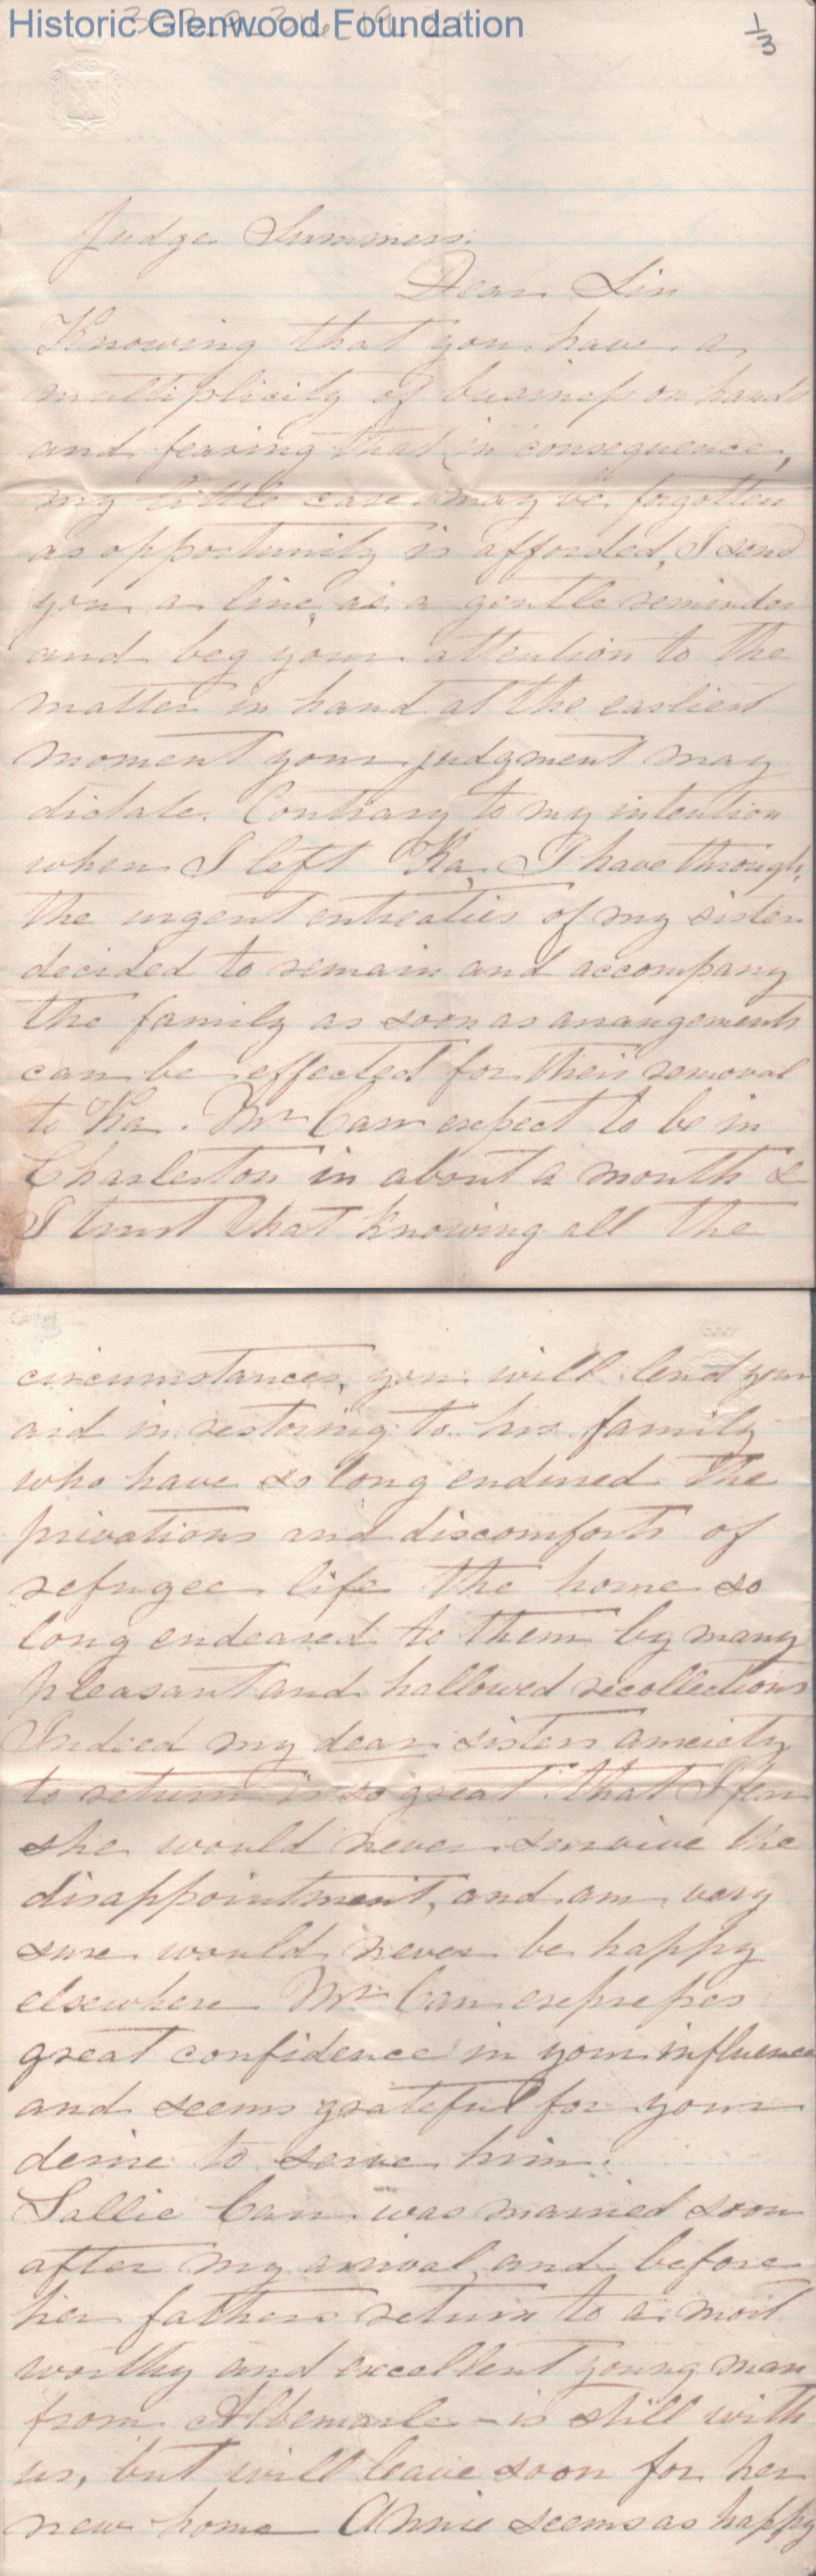 Historic Glenwood Foundation
1/3
Judge Summers.
Dear Sir
Knowing that you have a
multiplicity of business on hand
and fearing that in consequence,
my little case may be forgotten
as opportunity is afforded, I send
you a line, as a gentle reminder
and beg your attention to the
matter in hand at the earliest
moment your judgment may
dictate. Contrary to my intention
when I left Ka. I have through
the urgent entreaties of my sister
decided to remain and accompany
the family as soon as arrangements
can be effected for their removal
to Ka. Mr Carr expect to be in
Charleston in about a month &
I trust that knowing all the
circumstances, you will lend your
aid in restoring to his family
who have so long endured the
privations and discomforts of
refugee life the home so
long endeared to them by many
pleasant and hallowed recollections
Indeed my dear sisters anxiety
to return is so great that I fear
she would never survive the
disappointment, and am very
sure would never be happy
elsewhere Mr Carr expresses
great confidence in your influence
and seems grateful for your
desire to serve him.
Sallie Carr was married soon
after my arrival and before
her fathers return to a most
worthy and excellent young man
from Albemarle – is still with
us, but will leave soon for her
new home Annie seems as happy